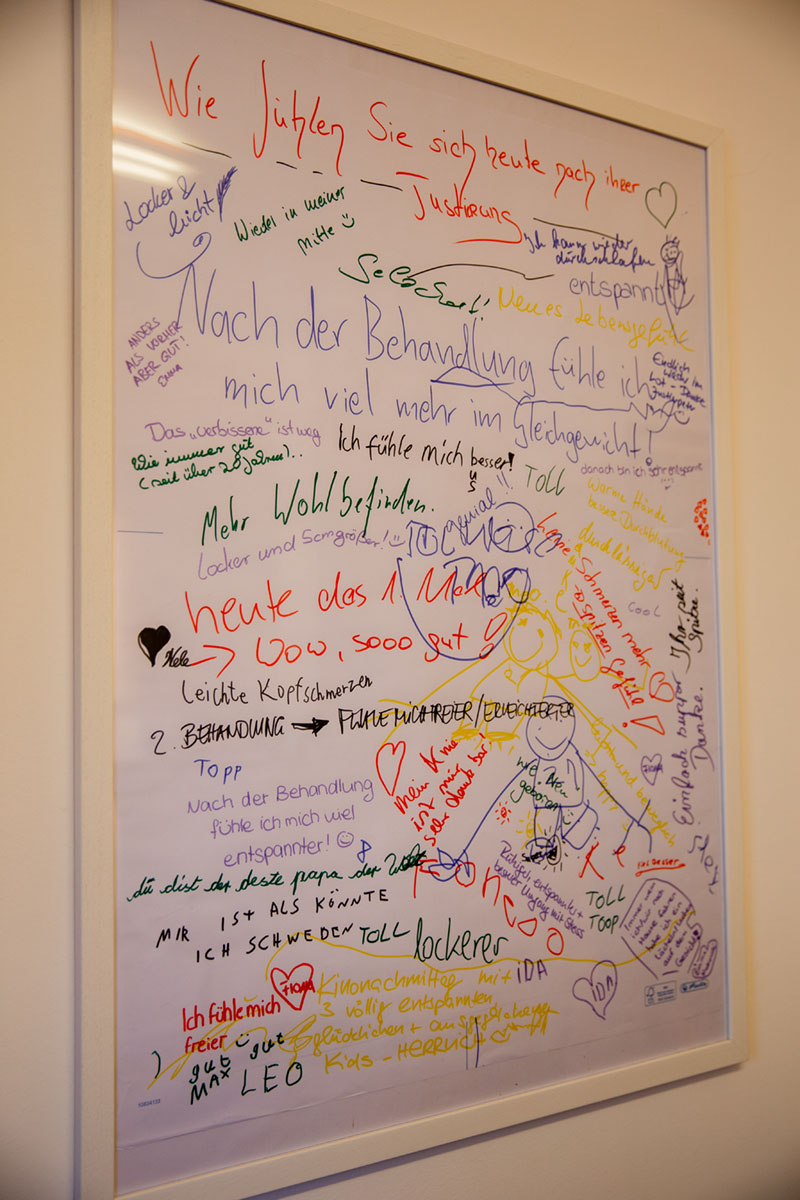 Wie fühlen Sie sich heute nach ihrer
Justierung
Locker &
leicht
Wieder in meiner
Mitte
Ich kann wieder
durchschlafen
entspannt
Neues Lebensgefühl
Nach der Behandlung fühle ich
mich viel mehr im Gleichgewicht!
ANDERS
ALS VORHER
ABER GUT!
EMMA
Endlich
wieder im
Lot - Danke
Das „verbissene" ist weg
Wie immer gut
(seit über 20 Jahren)..
Ich fühle mich besser!
TOLL
danach bin ich sehr entspannt
Warme Hände
bessere Durchblutung
durchlässiger
Mehr Wohlbefinden.
genial!!
Locker und 5cm größer!
heute das 1. Mal
Wow, sooo gut!
Nele
keine Schmerzen mehr
spitzen Gefühl
COOL
Ihr seit
Spitze.
Einfach super
Danke.
Leichte Kopfschmerzen
2. BEHANDLUNG → FÜHLE MICH FREIER/ERLEICHTERTER
TOPP
Mein Knie
ist mir
sehr dankbar!
wie neu
geboren
Nach der Behandlung
fühle ich mich viel
entspannter!
du bist der beste papa der Welt
MIR IST ALS KÖNNTE
ICH SCHWEDEN
TOLL
lockerer
TOLL
TOOP
IDA
IDA
Fiona
Ich fühle mich
freier
Kinonachmittag mit
3 völlig entspannten,
glücklichen + ausgeglichenen
Kids - HERRLICH
gut
MAX
gut
LEO